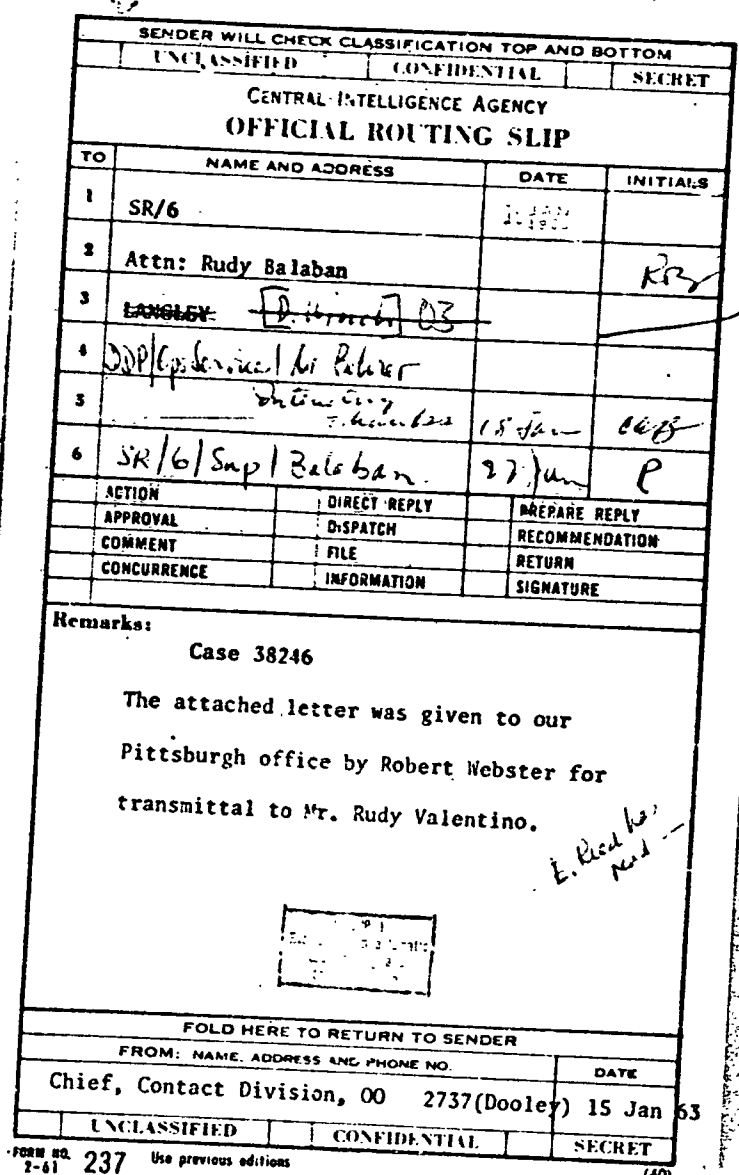 SENDER WILL CHECK CLASSIFICATION TOP AND BOTTOM
UNCLASSIFIED CONFIDENTIAL SECRET
CENTRAL INTELLIGENCE AGENCY
OFFICIAL ROUTING SLIP
TO NAME AND ADDRESS DATE INITIALS
1 SR/6
2 Attn: Rudy Balaban
3 LANGLEY
4 DDP/
5 15 Jan
6 SR/6/Sup/Balaban
ACTION DIRECT REPLY PREPARE REPLY
APPROVAL DISPATCH RECOMMENDATION
COMMENT FILE RETURN
CONCURRENCE INFORMATION SIGNATURE
Remarks:
Case 38246
The attached letter was given to our
Pittsburgh office by Robert Webster for
transmittal to Mr. Rudy Valentino.
FOLD HERE TO RETURN TO SENDER
FROM: NAME, ADDRESS AND PHONE NO. DATE
Chief, Contact Division, OO 2737(Dooley) 15 Jan 63
UNCLASSIFIED CONFIDENTIAL SECRET
FORM NO. 2-61 237 Use previous editions (40)